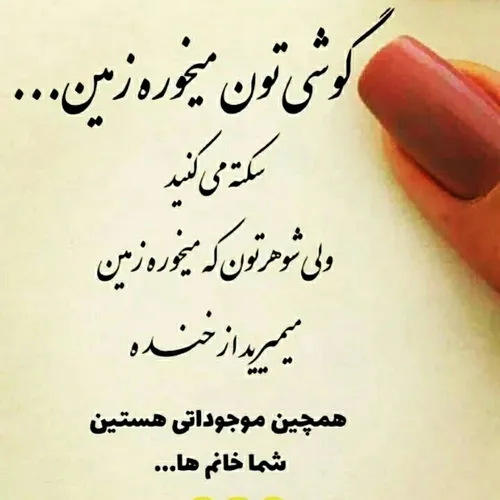 گوشی تون میخوره زمین...
سکته می کنید
ولی شوهرتون که میخوره زمین
میمیرید از خنده
همچین موجوداتی هستین
شما خانم ها...